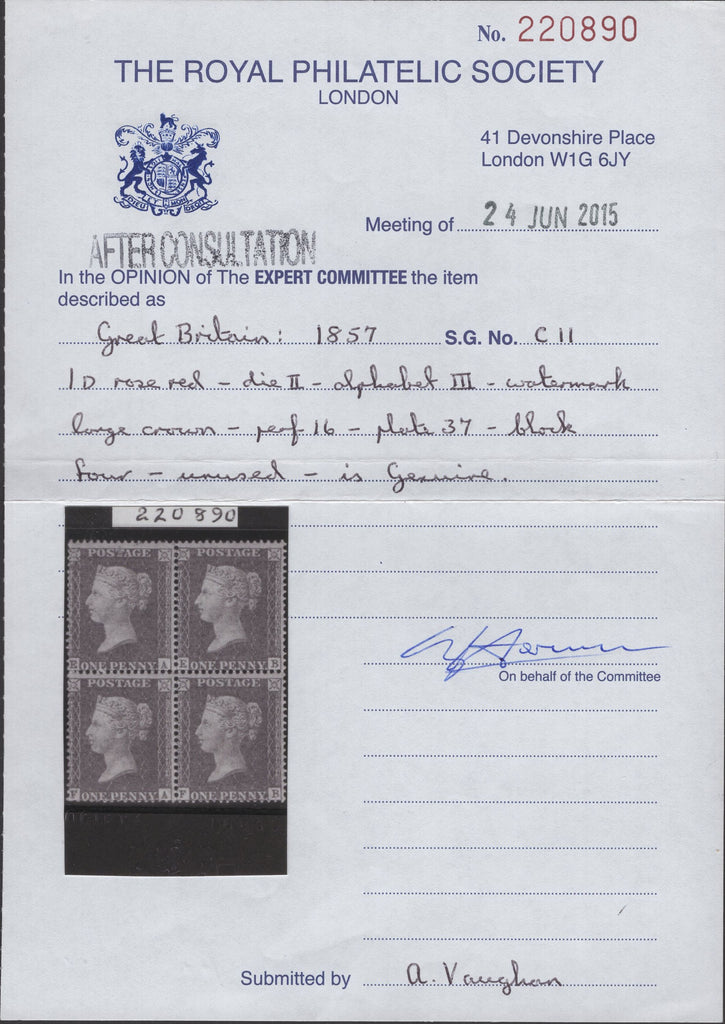 No. 220890
THE ROYAL PHILATELIC SOCIETY
LONDON
41 Devonshire Place
London W1G 6JY
Meeting of 24 JUN 2015
AFTER CONSULTATION
In the OPINION of The EXPERT COMMITTEE the item
described as
Great Britain: 1857 S.G. No. C 11
1D rose red - die II - alphabet III - watermark
large crown - perf 16 - plate 37 - block
four - unused - is Genuine.
220890
POSTAGE POSTAGE
E ONE PENNY A E ONE PENNY B
POSTAGE POSTAGE
F ONE PENNY A F ONE PENNY B
On behalf of the Committee
Submitted by A. Vaughan